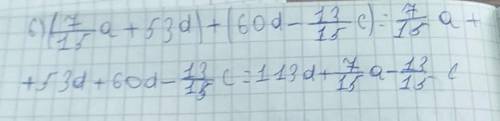 с) (7/15 a + 53d) + (60d - 13/15 c) = 7/15 a +
+ 53d + 60d - 13/15 c = 113d + 7/15 a - 13/15 c